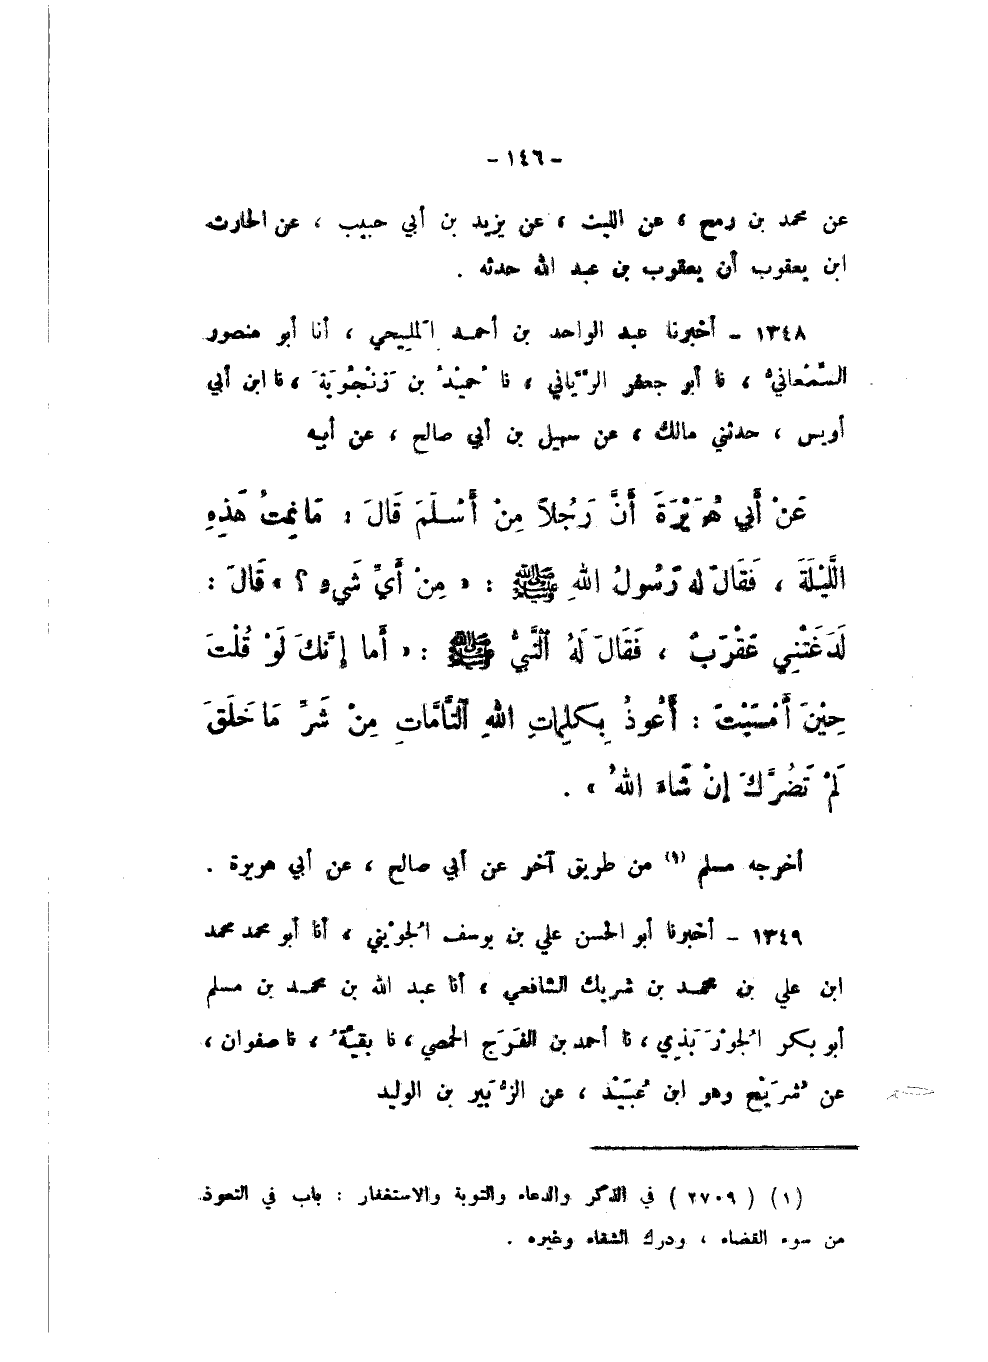 - ١٤٦ -
عن محمد بن رمح ، عن الليث ، عن يزيد بن أبي حبيب ، عن الحارث
ابن يعقوب أن يعقوب بن عبد الله حدثه .
١٣٤٨ - أخبرنا عبد الواحد بن أحمد المَليحي ، أنا أبو منصور
السَّمْعانيُّ ، نا أبو جعفر الرَّيَّاني ، نا حُمَيْدُ بن زَنْجُوَيَةَ ، نا ابن أبي
أويس ، حدثني مالك ، عن سهيل بن أبي صالح ، عن أبيه
عَنْ أَبي هُرَيْرَةَ أَنَّ رَجُلاً مِنْ أَسْلَمَ قَالَ : مَا نِمتُ هَذِهِ
اللَّيْلَةَ ، فَقَالَ له رَسُولُ اللهِ ﷺ : « مِنْ أَيِّ شَيءٍ ؟ » قَالَ :
لَدَغَتْنِي عَقْرَبٌ ، فَقَالَ لَهُ النَّبيُّ ﷺ : « أَما إنَّكَ لَوْ قُلْتَ
حِيْنَ أَمْسَيْتَ : أَعُوذُ بِكَلِماتِ اللهِ التَّامَّاتِ مِنْ شَرِّ مَا خَلَقَ
لَمْ تَضُرَّكَ إنْ شَاءَ اللهُ » .
أخرجه مسلم (١) من طريق آخر عن أبي صالح ، عن أبي هريرة .
١٣٤٩ - أخبرنا أبو الحسن علي بن يوسف الجُوَيْني ، أنا أبو محمد محمد
ابن علي بن محمد بن شريك الشافعي ، أنا عبد الله بن محمد بن مسلم
أبو بكر الجُورَبَذي ، نا أحمد بن الفَرَج الحمصي ، نا بقيَّةُ ، نا صفوان ،
عن شُرَيْح وهو ابن عُبَيْد ، عن الزُّبَير بن الوليد
(١) ( ٢٧٠٩ ) في الذكر والدعاء والتوبة والاستغفار : باب في التعوذ
من سوء القضاء ، ودرك الشقاء وغيره .